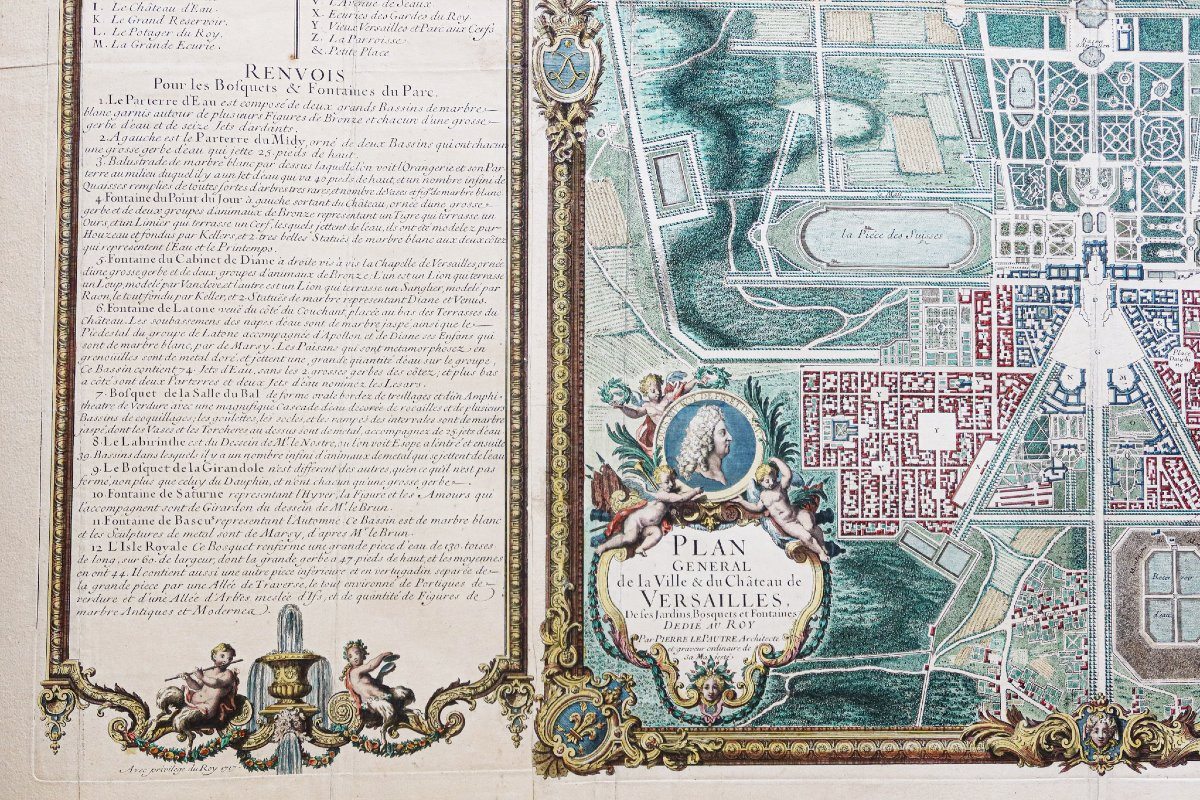 I. Le Château d'Eau.
K. Le Grand Reservoir.
L. Le Potager du Roy.
M. La Grande Ecurie.
V. L'Avenue de Seaux
X. Ecuries des Gardes du Roy
Y. Vieux Versailles et Parc aux Cerfs
Z. La Parroisse
&. Petite Place
RENVOIS
Pour les Bosquets & Fontaines du Parc.
1. Le Parterre d'Eau est composé de deux grands Bassins de marbre
blanc garnis autour de plusiurs Figures de Bronze et chacun d'une grosse
gerbe d'eau et de seize Jets d'ardants.
2. A gauche est le Parterre du Midy, orné de deux Bassins qui ont chacun
une grosse gerbe d'eau qui jette 25 pieds de haut.
3. Balustrade de marbre blanc par dessus laquelle l'on voit l'Orangerie et son Par
terre au milieu duquel il y a un Jet d'eau qui va 42 pieds de haut, et un nombre infini de
Quaisses remplies de toutes sortes d'arbres tres rares, et nombre de Vases et fig. de marbre blanc
4 Fontaine du Point du Jour à gauche sortant du Château, ornée d'une grosse
gerbe et de deux groupes d'animaux de Bronze representant un Tigre qui terrasse un
Ours, et un Limier qui terrasse un Cerf, lesquels jettent de l'eau, ils ont eté modelez par
Houzeau et fondus par Kellers, et 2 tres belles Statues de marbre blanc aux deux côtez
qui representent l'Eau et le Printemps.
5. Fontaine du Cabinet de Diane à droite vis à vis la Chapelle de Versailles, ornée
d'une grosse gerbe et de deux groupes d'animaux de Bronze, L'un est un Lion qui terrasse
un Loup, modelé par Vanclove et l'autre est un Lion qui terrasse un Sanglier, modelé par
Raon, le tout fondu par Keller, et 2 Statues de marbre representant Diane et Venus.
6. Fontaine de Latone veuë du côté du Couchant placée au bas des Terrasses du
Château. Les soubassemens des napes d'eau sont de marbre jaspe, ainsi que le
Piedestal du groupe de Latone accompagnée d'Apollon et de Diane ses Enfans qui
sont de marbre blanc, par de Marsy. Les Paisans qui sont metamorphosez en
grenouilles sont de metal doré, et jettent une grande quantité d'eau sur le groupe.
Ce Bassin contient 74 Jets d'Eau, sans les 2 grosses gerbes des côtez; et plus bas
a côté sont deux Parterres et deux Jets d'eau nommez les Lesars.
7. Bosquet de la Salle du Bal de forme ovale bordez de treillages et d'un Amphi
theatre de Verdure avec une magnifique Cascade d'eau decorée de rocailles et de plusieurs
Bassins de coquillages
jaspé, dont les Vases et les Torcheres au dessus sont de metal, accompagnez de 25 pots d'eau
8. Le Labirinthe est du Dessein de Mr. le Nostre, ou l'on voit Esope a l'entré et ensuite
39. Bassins dans lesquels il y a un nombre infini d'animaux de metal qui se jettent de l'eau
9. Le Bosquet de la Girandole n'est different des autres, qu'en ce qu'il n'est pas
fermé, non plus que celuy du Dauphin, et n'ont chacun qu'une grosse gerbe.
10. Fontaine de Saturne representant l'Hyver, la Figure et les Amours qui
l'accompagnent sont de Girardon du dessein de Mr. le Brun.
11 Fontaine de Bascus representant l'Automne. Ce Bassin est de marbre blanc
et les Sculptures de metal sont de Marsy, d'apres Mr. le Brun.
12 L'Isle Royale Ce Bosquet renferme une grande piece d'eau de 130. toises
de long, sur 60. de largeur, dont la grande gerbe a 47 pieds de haut, et les moyennes
en ont 44. Il contient aussi une autre piece inferieure et en vertugadin separée de
la grande piece par une Allée de Traverse, le tout environné de Portiques de
verdure et d'une Allée d'Arbes meslée d'Ifs, et de quantité de Figures de
marbre Antiques et Modernes.
Avec privilege du Roy 1717
la Piece des Suisses
Y
Y
Y
G
N
M
K
PLAN
GENERAL
de la Ville & du Château de
VERSAILLES,
De ses Jardins, Bosquets et Fontaines
DEDIÉ AU ROY
Par PIERRE LE PAUTRE Architecte
et graveur ordinaire de
sa Majesté.